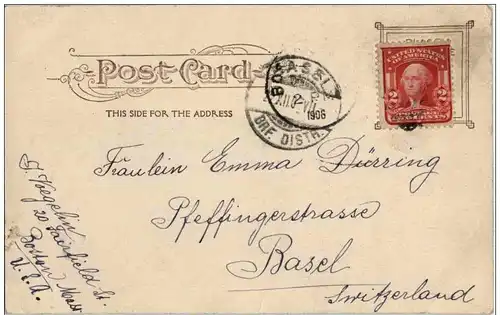 Post Card
THIS SIDE FOR THE ADDRESS
BASEL
1906
BRF. DISTR.
UNITED STATES
OF AMERICA
2 2
TWO CENTS
Fräulein Emma Dürring
Pfeffingerstrasse
Basel
Switzerland
J. Voegelin
20 Fairfield St.
Boston Mass
U.S.A.